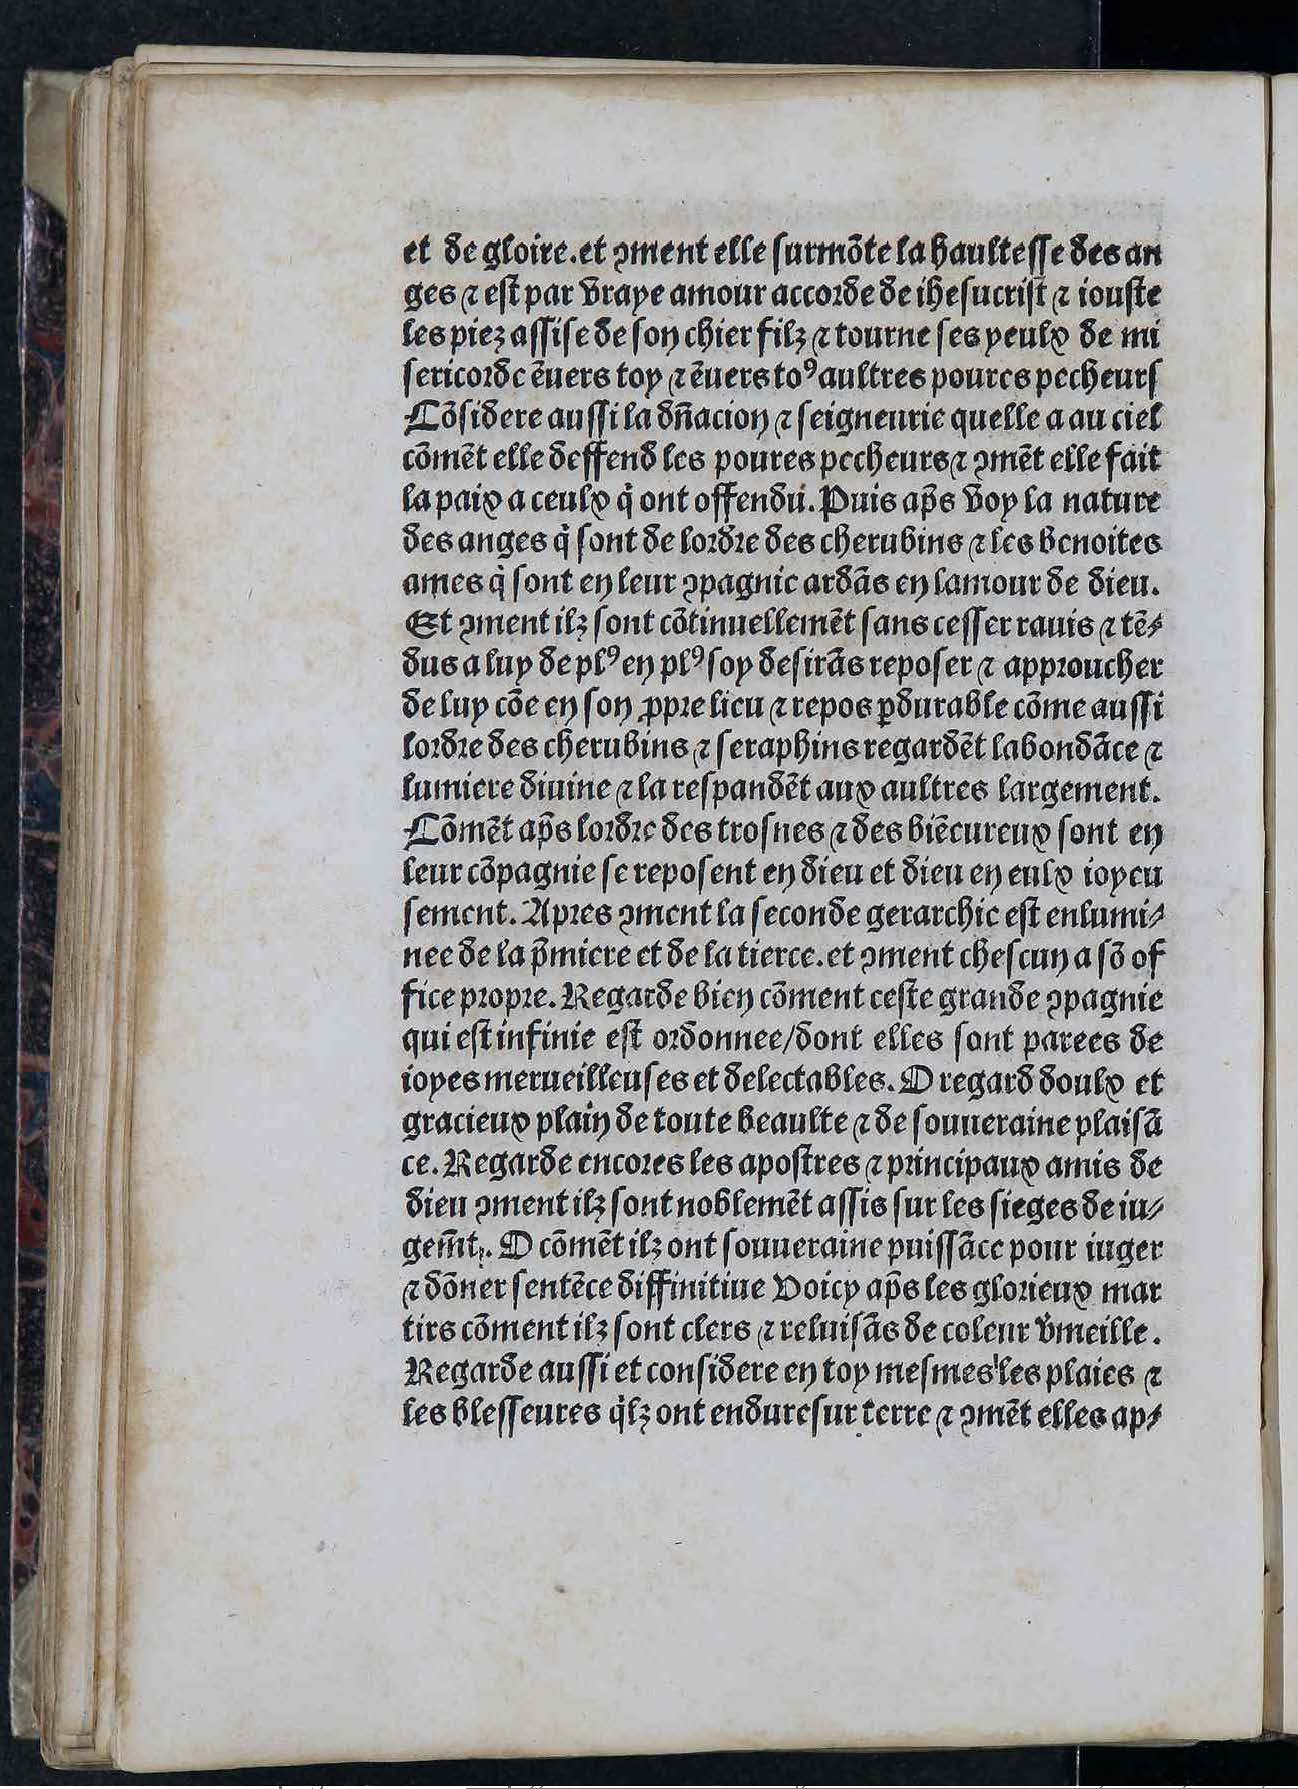 et de gloire.et ꝯment elle surmõte la haultesse des an
ges ⁊ est par vraye amour accorde de ihesucrist ⁊ iouste
les piez assise de son chier filz ⁊ tourne ses yeulx de mi
sericorde ẽuers toy ⁊ ẽuers toꝰ aultres poures pecheurs
Cõsidere aussi la dñacion ⁊ seigneurie quelle a au ciel
cõmẽt elle deffend les poures pecheurs ⁊ ꝯmẽt elle fait
la paix a ceulx q̃ ont offendu. Puis ap̃s voy la nature
des anges q̃ sont de lordre des cherubins ⁊ les benoites
ames q̃ sont en leur ꝯpagnie ardãs en lamour de dieu.
Et ꝯment ilz sont cõtinuellemẽt sans cesser rauis ⁊ tẽ⸗
dus a luy de plꝰ en plꝰ soy desirãs reposer ⁊ approucher
de luy cõe en son ꝓpre lieu ⁊ repos ꝑdurable cõme aussi
lordre des cherubins ⁊ seraphins regardẽt labondãce ⁊
lumiere diuine ⁊ la respandẽt aux aultres largement.
Cõmẽt ap̃s lordre des trosnes ⁊ des biẽeureux sont en
leur cõpagnie se reposent en dieu et dieu en eulx ioyeu
sement. Apres ꝯment la seconde gerarchie est enlumi⸗
nee de la p̃miere et de la tierce. et ꝯment chescun a sõ of
fice propre. Regarde bien cõment ceste grande ꝯpagnie
qui est infinie est ordonnee/dont elles sont parees de
ioyes merueilleuses et delectables. O regard doulx et
gracieux plain de toute beaulte ⁊ de souueraine plaisã
ce. Regarde encores les apostres ⁊ principaux amis de
dieu ꝯment ilz sont noblemẽt assis sur les sieges de iu⸗
gem̃t. O cõmẽt ilz ont souueraine puissãce pour iuger
⁊ dõner sentẽce diffinitiue Voicy ap̃s les glorieux mar
tirs cõment ilz sont clers ⁊ reluisãs de coleur v̾meille.
Regarde aussi et considere en toy mesmes les plaies ⁊
les blesseures q̃lz ont endure sur terre ⁊ ꝯmẽt elles ap⸗